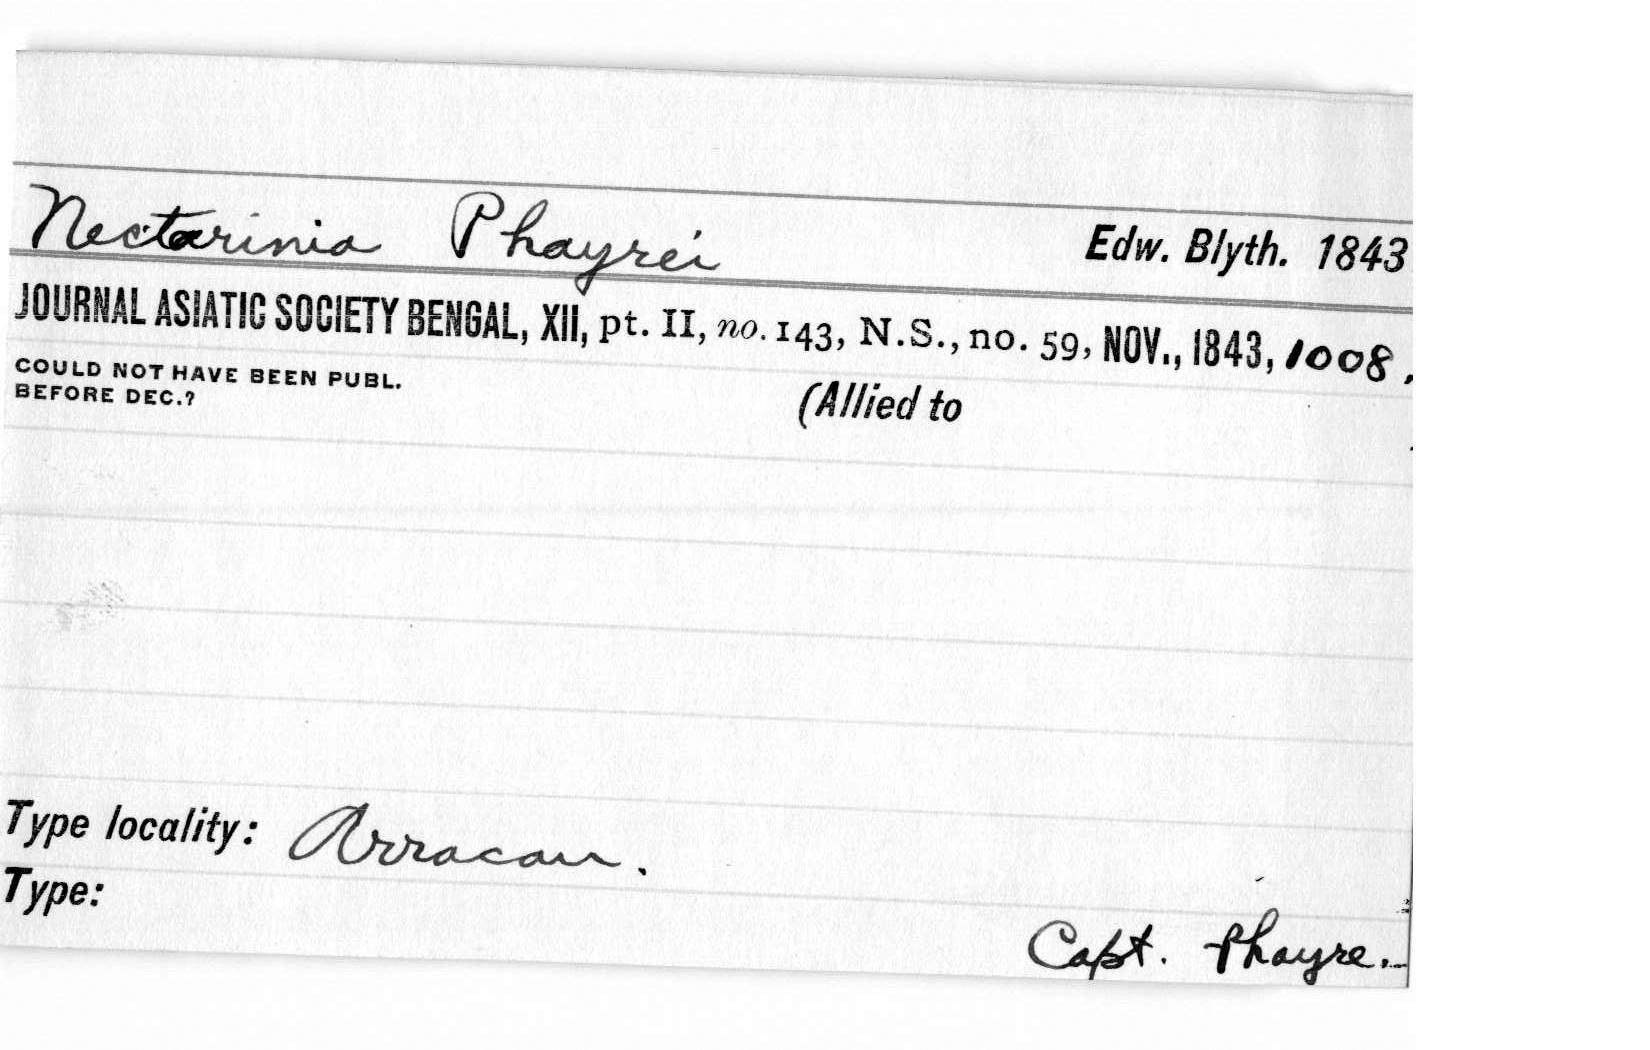 Nectarinia Phayrei Edw. Blyth. 1843
JOURNAL ASIATIC SOCIETY BENGAL, XII, pt. II, no. 143, N.S., no. 59, NOV., 1843, 1008.
COULD NOT HAVE BEEN PUBL.
BEFORE DEC.?
(Allied to
Type locality: Arracan.
Type:
Capt. Phayre.